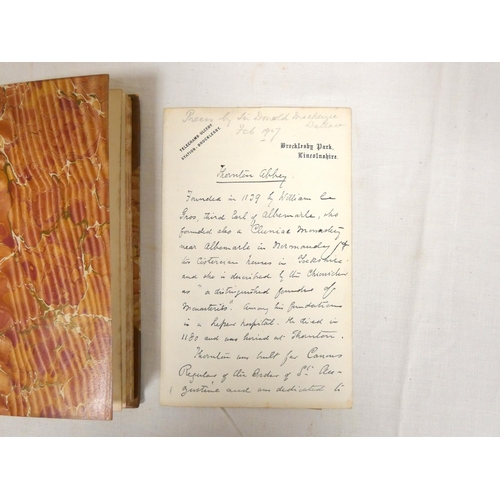 Precis by Sir Donald Mackenzie
Wallace
Feb 1907
TELEGRAMS ULCEBY
STATION. BROCKLESBY.
Brocklesby Park,
Lincolnshire.
Thornton Abbey
Founded in 1139 by William Le
Gros, third Earl of Albemarle, who
founded also a Cluniac Monastery
near Albemarle in Normandy &
six Cistercian houses in Yorkshire
and who is described by the Chronicler
as "a distinguished founder of
Monasteries". Among his foundations
is a leper hospital. He died in
1180 and was buried at Thornton.
Thornton was built for Canons
Regulars of the Order of St. Au-
gustine and was dedicated to